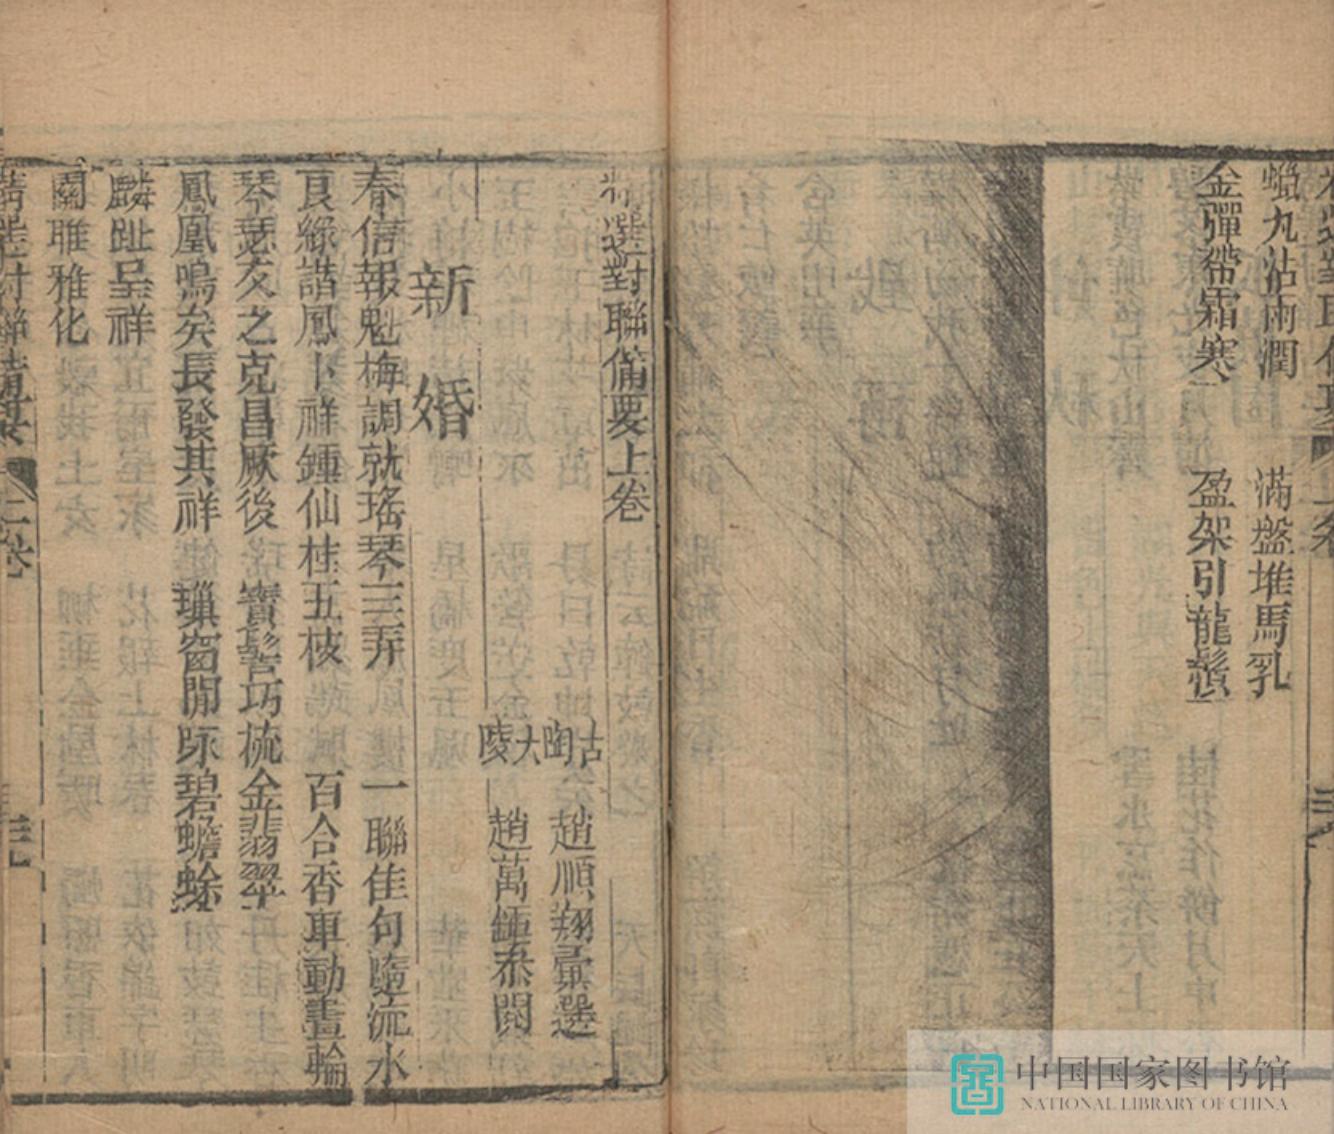 蠟丸沾雨潤　滿盤堆馬乳
金彈帶霜寒　盈架引龍鬚
精選對聯備要上卷
古陶　趙順翔彙選
大陵　趙萬鍾泰閱
新婚
春信報魁梅調就瑤琴三弄　一聯佳句隨流水
良緣諧鳳卜祥鍾仙桂五枝　百合香車動畫輪
琴瑟友之克昌厥後　寶髻巧梳金翡翠
鳳凰鳴矣長發其祥　瑣窗閒琢碧蟾蜍
麟趾呈祥
關雎雅化
中国国家图书馆
NATIONAL LIBRARY OF CHINA